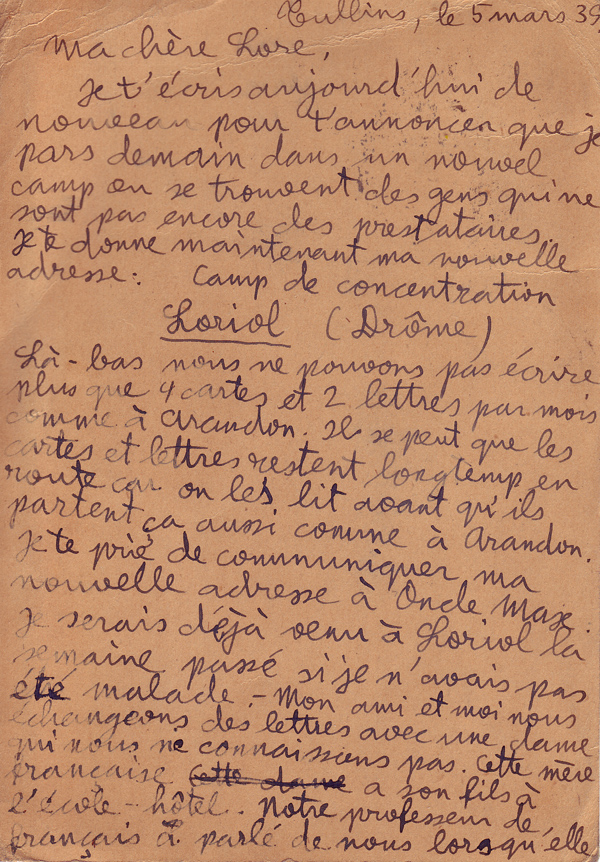 Tullins, le 5 mars 39
Ma chère Lore,
Je t'écris aujourd'hui de
nouveau pour t'annoncer que je
pars demain dans un nouvel
camp ou se trouvent des gens qui ne
sont pas encore des prestataires.
Je te donne maintenant ma nouvelle
adresse: Camp de concentration
Loriol (Drôme)
Là-bas nous ne pouvons pas écrire
plus que 4 cartes et 2 lettres par mois
comme à Arandon. Il se peut que les
cartes et lettres restent longtemp en
route car on les lit avant qu'ils
partent, ça aussi comme à Arandon.
Je te prie de communiquer ma
nouvelle adresse à Oncle Max.
Je serais déjà venu à Loriol la
semaine passé si je n'avais pas
été malade. - Mon ami et moi nous
échangeons des lettres avec une dame
qui nous ne connaissons pas. Cette mère
française cette dame a son fils à
l'école-hôtel. Notre professeur de
français a parlé de nous lorsqu'elle